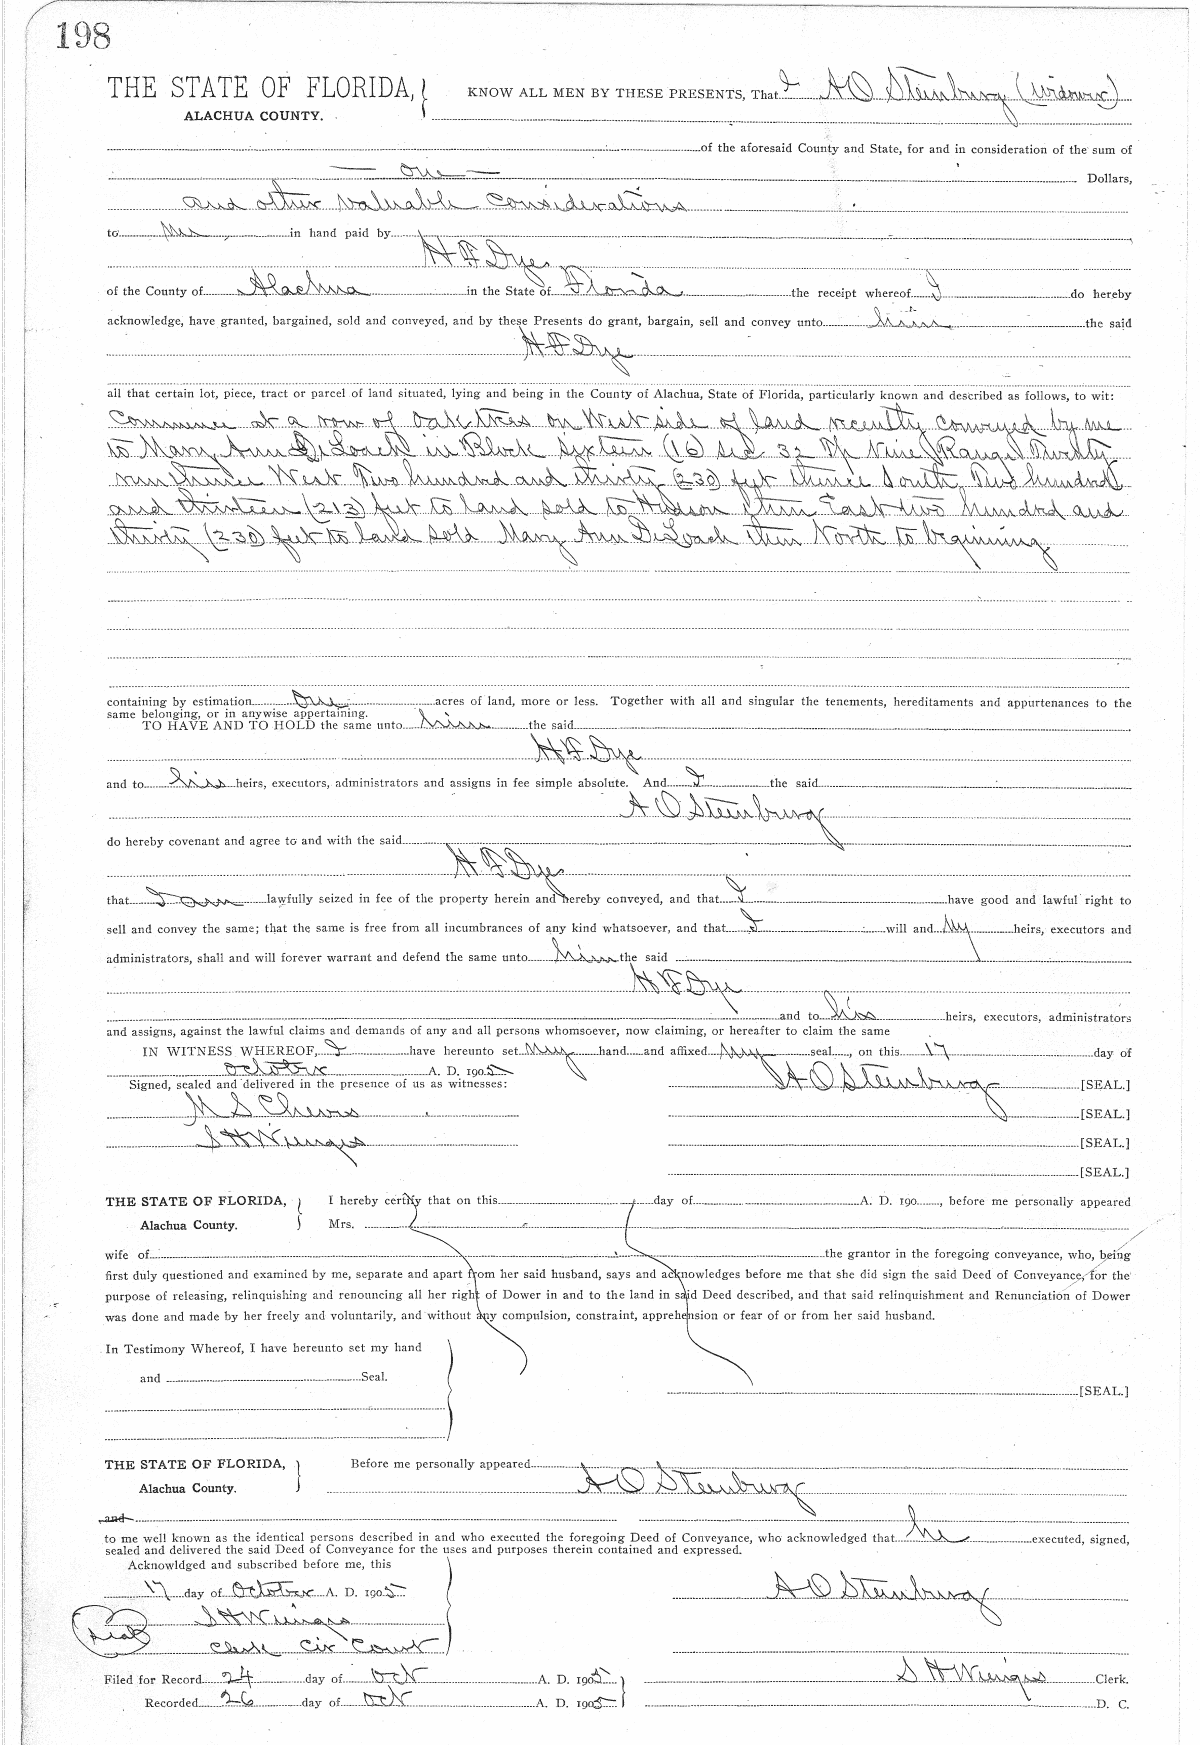 198
THE STATE OF FLORIDA, KNOW ALL MEN BY THESE PRESENTS, That I A O Steenburg (widower)
ALACHUA COUNTY.
of the aforesaid County and State, for and in consideration of the sum of
— one — Dollars,
and other valuable considerations
to me in hand paid by
H F Dye
of the County of Alachua in the State of Florida the receipt whereof I do hereby
acknowledge, have granted, bargained, sold and conveyed, and by these Presents do grant, bargain, sell and convey unto him the said
H F Dye
all that certain lot, piece, tract or parcel of land situated, lying and being in the County of Alachua, State of Florida, particularly known and described as follows, to wit:
Commence at a row of oak trees on West side of land recently conveyed by me
to Mary Ann DeLoach in Block sixteen (16) sec 32 Tp Nine Range Twenty
run thence West Two hundred and thirty (230) feet thence South Two hundred
and thirteen (213) feet to land sold to Hudson then East two hundred and
thirty (230) feet to land sold Mary Ann DeLoach then North to beginning
containing by estimation One acres of land, more or less. Together with all and singular the tenements, hereditaments and appurtenances to the
same belonging, or in anywise appertaining.
TO HAVE AND TO HOLD the same unto him the said
H F Dye
and to his heirs, executors, administrators and assigns in fee simple absolute. And I the said
A O Steenburg
do hereby covenant and agree to and with the said
H F Dye
that I am lawfully seized in fee of the property herein and hereby conveyed, and that I have good and lawful right to
sell and convey the same; that the same is free from all incumbrances of any kind whatsoever, and that I will and My heirs, executors and
administrators, shall and will forever warrant and defend the same unto him the said
H F Dye
and to his heirs, executors, administrators
and assigns, against the lawful claims and demands of any and all persons whomsoever, now claiming, or hereafter to claim the same
IN WITNESS WHEREOF, I have hereunto set My hand and affixed My seal, on this 17 day of
October A. D. 1905
Signed, sealed and delivered in the presence of us as witnesses: A O Steenburg [SEAL.]
M S Cheves [SEAL.]
S H Wienges [SEAL.]
[SEAL.]
THE STATE OF FLORIDA, I hereby certify that on this day of A. D. 190 , before me personally appeared
Alachua County. Mrs.
wife of the grantor in the foregoing conveyance, who, being
first duly questioned and examined by me, separate and apart from her said husband, says and acknowledges before me that she did sign the said Deed of Conveyance, for the
purpose of releasing, relinquishing and renouncing all her right of Dower in and to the land in said Deed described, and that said relinquishment and Renunciation of Dower
was done and made by her freely and voluntarily, and without any compulsion, constraint, apprehension or fear of or from her said husband.
In Testimony Whereof, I have hereunto set my hand
and Seal.
[SEAL.]
THE STATE OF FLORIDA, Before me personally appeared
Alachua County. A O Steenburg
and
to me well known as the identical persons described in and who executed the foregoing Deed of Conveyance, who acknowledged that he executed, signed,
sealed and delivered the said Deed of Conveyance for the uses and purposes therein contained and expressed.
Acknowldged and subscribed before me, this
17 day of October A. D. 1905 A O Steenburg
S H Wienges
Seal Clerk Cir Court
Filed for Record 24 day of Oct A. D. 1905 S H Wienges Clerk.
Recorded 26 day of Oct A. D. 1905 D. C.